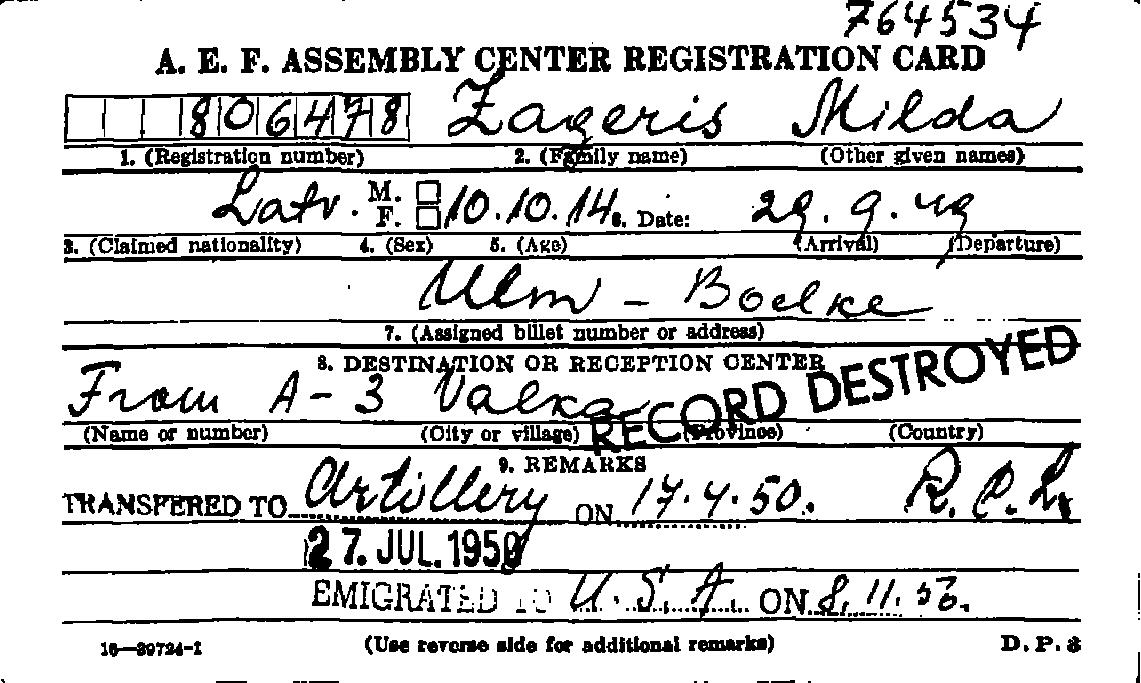 764534
A. E. F. ASSEMBLY CENTER REGISTRATION CARD
806478 Zageris Milda
1. (Registration number) 2. (Family name) (Other given names)
Latv. M. F. 10.10.14. 6. Date: 29.9.49
3. (Claimed nationality) 4. (Sex) 5. (Age) (Arrival) (Departure)
Ulm - Boelke
7. (Assigned billet number or address)
8. DESTINATION OR RECEPTION CENTER
From A-3 Valka RECORD DESTROYED
(Name or number) (City or village) (Province) (Country)
9. REMARKS
TRANSFERED TO Artillery ON 17.4.50.
27. JUL. 1950
EMIGRATED TO U.S.A. ON 8.11.56.
16—39724-1 (Use reverse side for additional remarks) D.P. 3